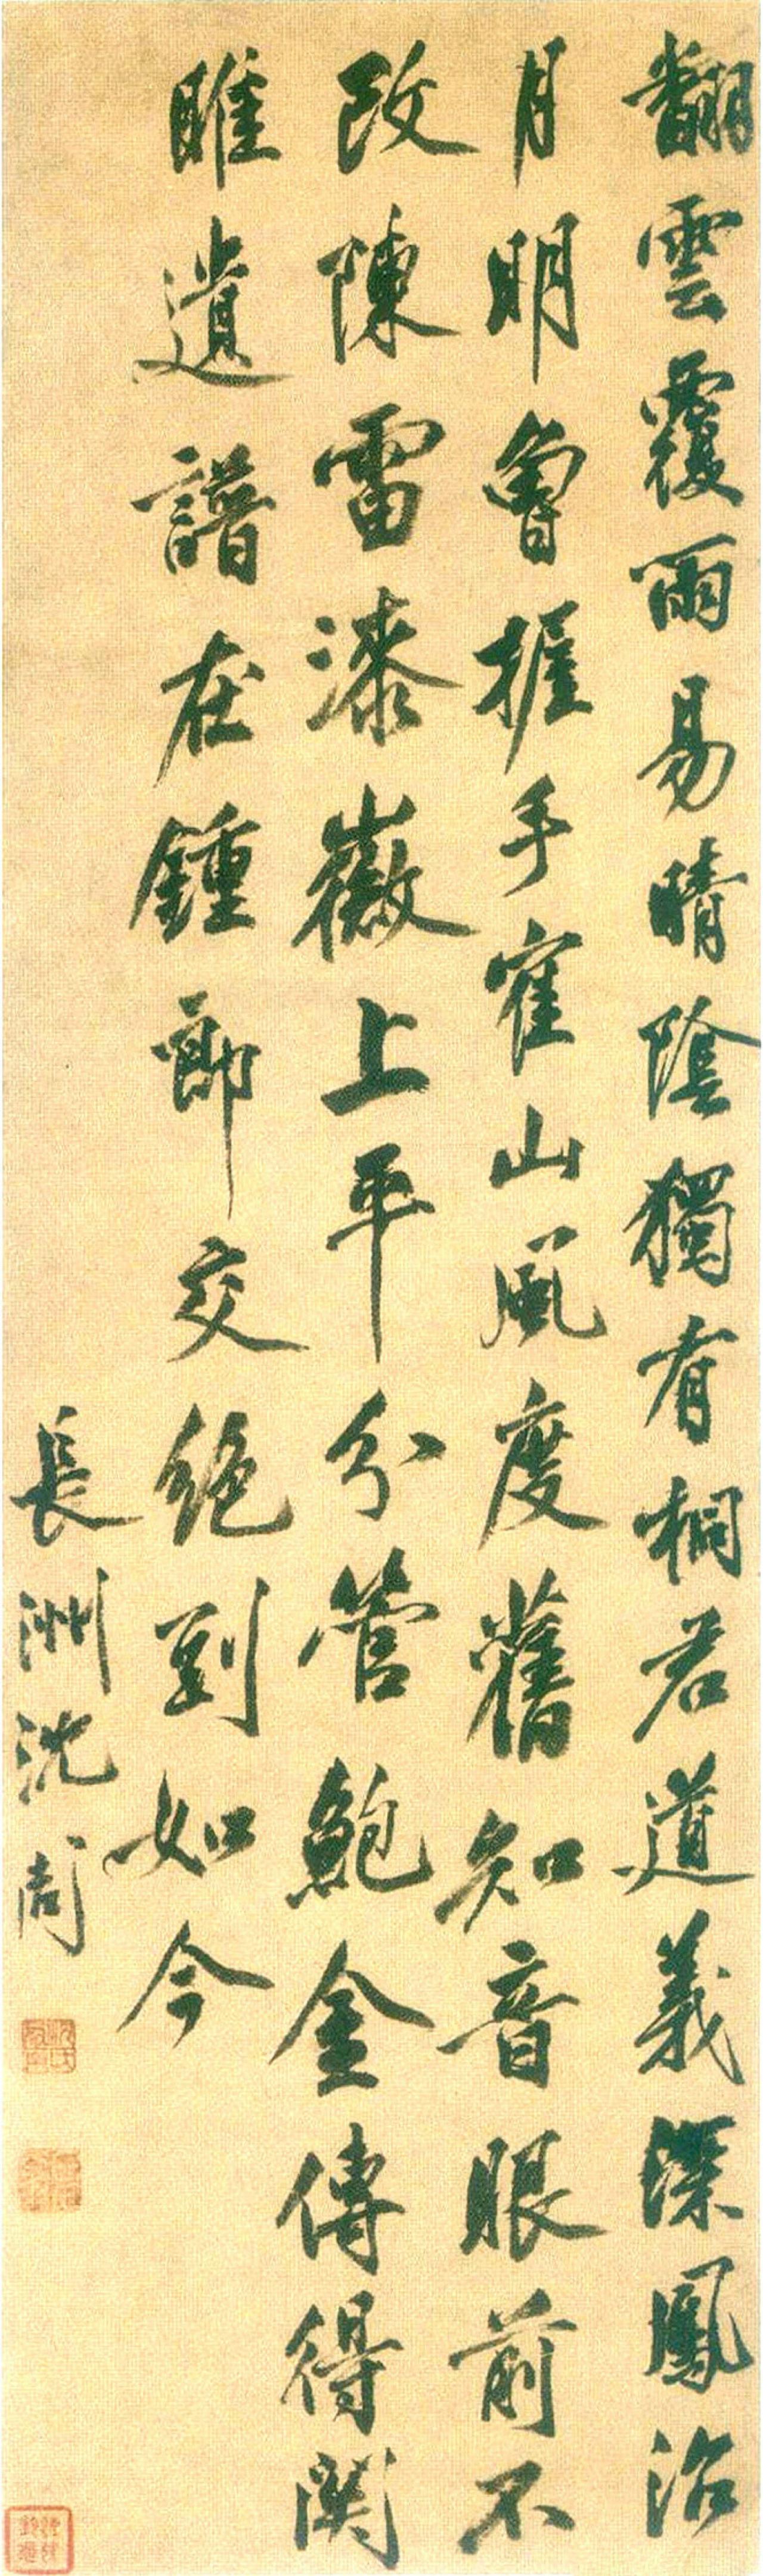 翻雲覆雨易晴陰獨有桐君道義深鳳沼
月明曾握手霍山風度舊知音眼前不
改陳雷漆嶶上平分管鮑金傳得関
睢遺譜在鍾郎交絶到如今
長洲沈周